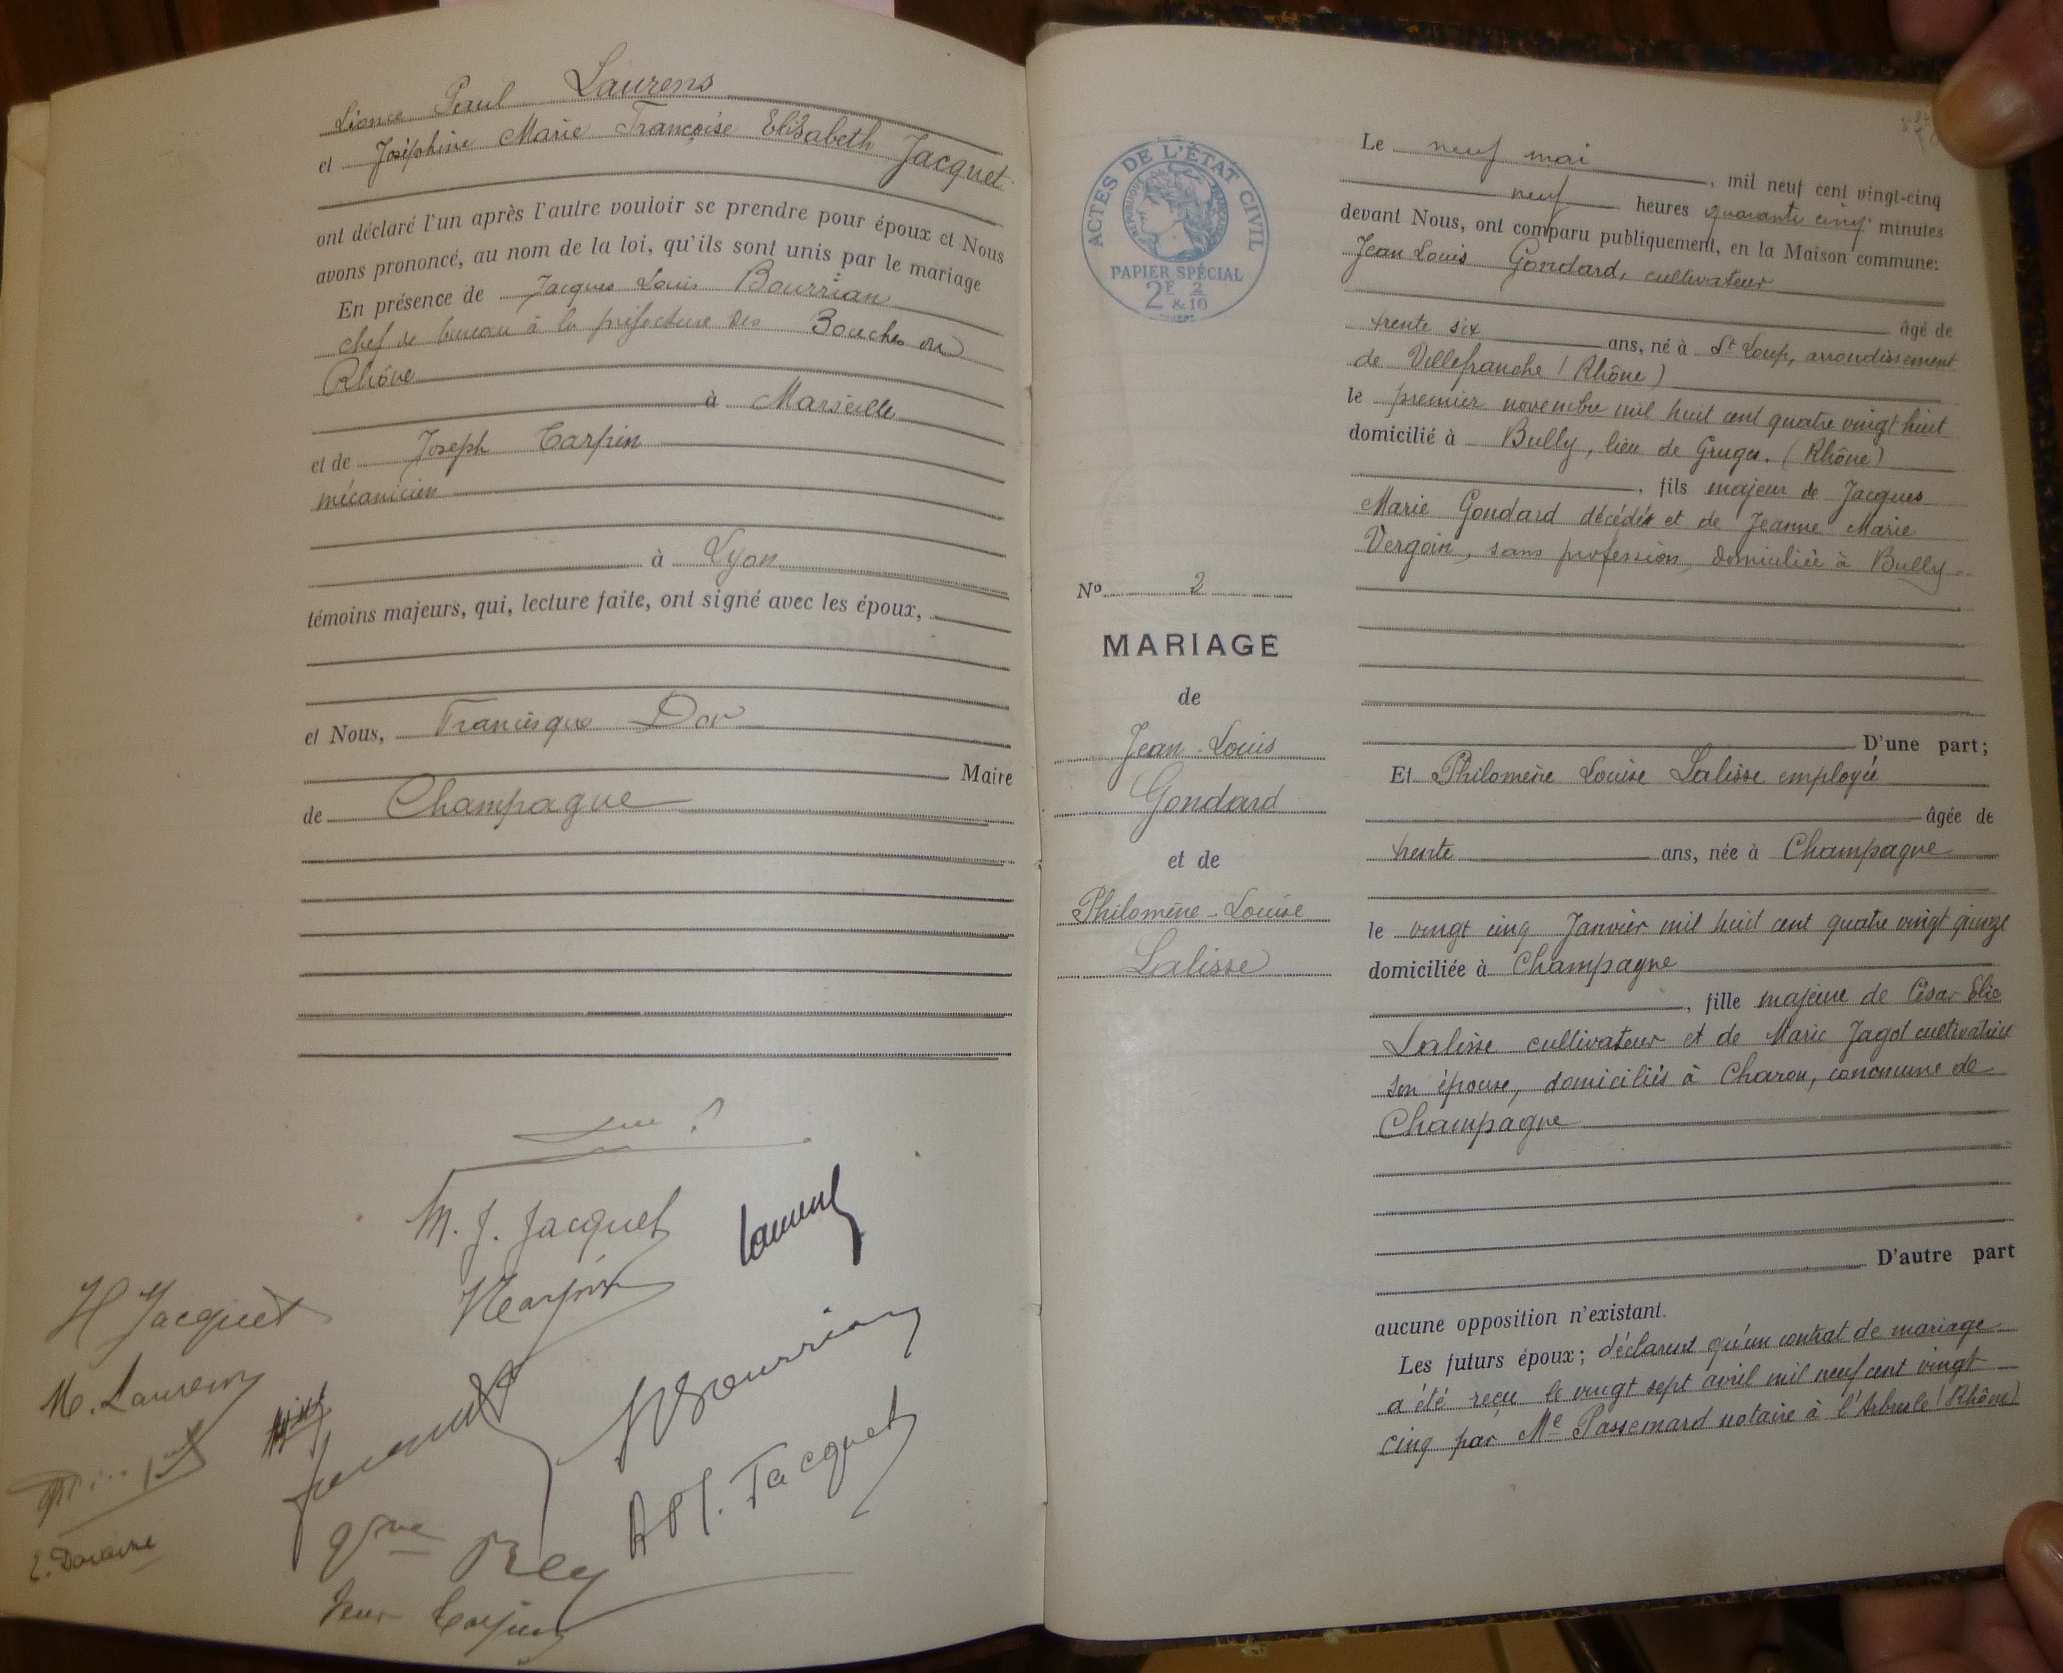 Paul Laurens
et Joséphine Marie Françoise Elisabeth Jacquet
ont déclaré l'un après l'autre vouloir se prendre pour époux et Nous
avons prononcé, au nom de la loi, qu'ils sont unis par le mariage
En présence de Jacques Louis Bourrian
chef de bureau à la préfecture des Bouches du
Rhône
à Marseille
et de Joseph Tarpin
mécanicien
à Lyon
témoins majeurs, qui, lecture faite, ont signé avec les époux,
et Nous, Francisque Dor
Maire
de Champagne
M. J. Jacquet
Laurens
H Jacquet
Tarpin
M. Laurens
Bourrian
Jacquet
Rey
ACTES DE L'ÉTAT CIVIL
PAPIER SPÉCIAL
2F 2
&10
No 2
MARIAGE
de
Jean-Louis
Gondard
et de
Philomène-Louise
Lalisse
Le neuf mai, mil neuf cent vingt-cinq
neuf heures quarante cinq minutes
devant Nous, ont comparu publiquement, en la Maison commune:
Jean Louis Gondard, cultivateur
âgé de
trente six ans, né à St Loup, arrondissement
de Villefranche (Rhône)
le premier novembre mil huit cent quatre vingt huit
domicilié à Bully, lieu de Gruges. (Rhône)
, fils majeur de Jacques
Marie Gondard décédés et de Jeanne Marie
Vergoin, sans profession, domiciliée à Bully
D'une part;
Et Philomène Louise Lalisse employée
âgée de
trente ans, née à Champagne
le vingt cinq Janvier mil huit cent quatre vingt quinze
domiciliée à Champagne
, fille majeure de César Elie
Lalisse cultivateur et de Marie Jagot cultivatrice
son épouse, domiciliés à Charou, commune de
Champagne
D'autre part
aucune opposition n'existant.
Les futurs époux; déclarent qu'un contrat de mariage
a été reçu le vingt sept avril mil neuf cent vingt
cinq par Me Passemard notaire à l'Arbresle (Rhône)